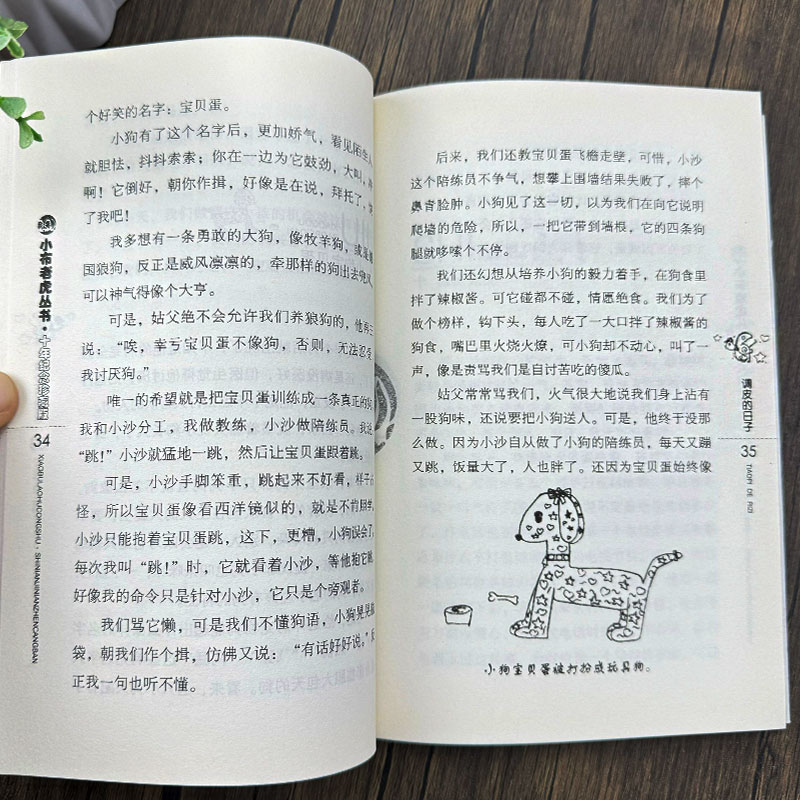 个好笑的名字：宝贝蛋。
小狗有了这个名字后，更加娇气，看见陌生人
就胆怯，抖抖索索；你在一边为它鼓劲，大叫，
啊！它倒好，朝你作揖，好像是在说，拜托了，
了我吧！
我多想有一条勇敢的大狗，像牧羊狗，或是
国狼狗，反正是威风凛凛的，牵那样的狗出去兜风，
可以神气得像个大亨。
可是，姑父绝不会允许我们养狼狗的，他再三
说：“唉，幸亏宝贝蛋不像狗，否则，无法忍受，
我讨厌狗。”
唯一的希望就是把宝贝蛋训练成一条真正的狗，
我和小沙分工，我做教练，小沙做陪练员。我说
“跳！”小沙就猛地一跳，然后让宝贝蛋跟着跳。
可是，小沙手脚笨重，跳起来不好看，样子
怪，所以宝贝蛋像看西洋镜似的，就是不肯跟学，
小沙只能抱着宝贝蛋跳，这下，更糟，小狗误会了，
每次我叫“跳！”时，它就看着小沙，等他抱它跳，
好像我的命令只是针对小沙，它只是个旁观者。
我们骂它懒，可是我们不懂狗语，小狗晃晃脑
袋，朝我们作个揖，仿佛又说：“有话好好说。”反
正我一句也听不懂。
小布老虎丛书·十年纪念珍藏版
34
XIAOBULAOHUCONGSHU · SHINIANJINIANZHENCANGBAN
后来，我们还教宝贝蛋飞檐走壁，可惜，小沙
这个陪练员不争气，想攀上围墙结果失败了，摔个
鼻青脸肿。小狗见了这一切，以为我们在向它说明
爬墙的危险，所以，一把它带到墙根，它的四条狗
腿就哆嗦个不停。
我们还幻想从培养小狗的毅力着手，在狗食里
拌了辣椒酱。可它碰都不碰，情愿绝食。我们为了
做个榜样，钩下头，每人吃了一大口拌了辣椒酱的
狗食，嘴巴里火烧火燎，可小狗却不动心，叫了一
声，像是责骂我们是自讨苦吃的傻瓜。
姑父常常骂我们，火气很大地说我们身上沾有
一股狗味，还说要把小狗送人。可是，他终于没那
么做。因为小沙自从做了小狗的陪练员，每天又蹦
又跳，饭量大了，人也胖了。还因为宝贝蛋始终像
小狗宝贝蛋被打扮成玩具狗。
调皮的日子
35
TIAOPI DE RIZI